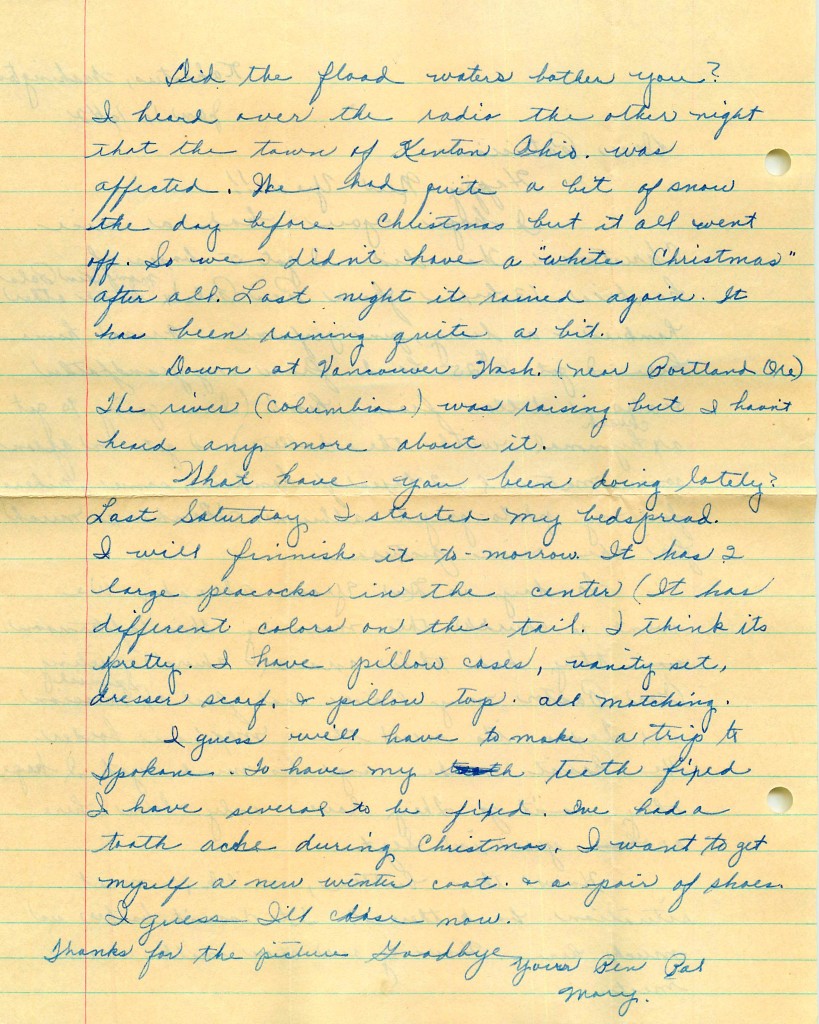 Did the flood waters bother you?
I heard over the radio the other night
that the town of Kenton Ohio. was
affected. We had quite a bit of snow
the day before Christmas but it all went
off. So we didn't have a "white Christmas"
after all. Last night it rained again. It
has been raining quite a bit.
Down at Vancouver Wash. (near Portland Ore)
The river (Columbia) was raising but I havn't
heard any more about it.
What have you been doing lately?
Last Saturday I started my bedspread.
I will finnish it to-morrow. It has 2
large peacocks in the center (It has
different colors on the tail. I think its
pretty. I have pillow cases, vanity set,
dresser scarf, & pillow top. all matching.
I guess will have to make a trip to
Spokane. To have my teeth fixed
I have several to be fixed. I've had a
tooth ache during Christmas. I want to get
myself a new winter coat. & a pair of shoes.
I guess I'll close now.
Thanks for the picture Goodbye
Your Pen Pal
Mary.